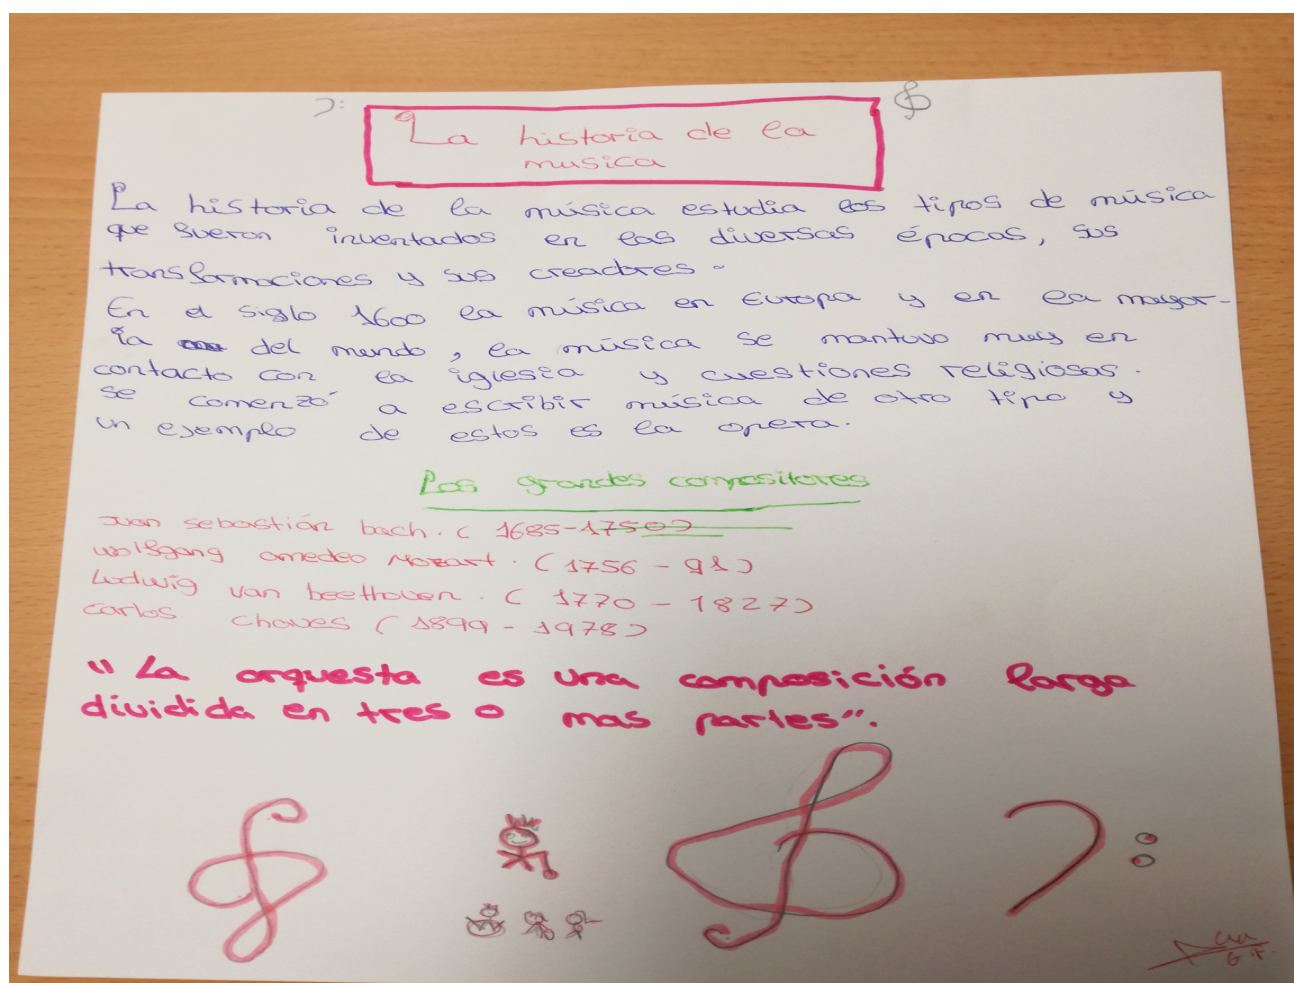 La historia de la
musica
La historia de la música estudia los tipos de música
que fueron inventados en las diversas épocas, sus
transformaciones y sus creadores.
En el siglo 1600 la música en Europa y en la mayor-
ia del mundo, la música se mantuvo muy en
contacto con la iglesia y cuestiones religiosas.
se comenzó a escribir música de otro tipo y
un ejemplo de estos es la opera.
Los grandes compositores
Juan sebastián bach. (1685-1750)
wolfgang amedeo Mozart. (1756-91)
Ludwig van beethoven. (1770-1827)
Carlos Chaves (1899-1978)
"La orquesta es una composición larga
dividida en tres o mas partes".